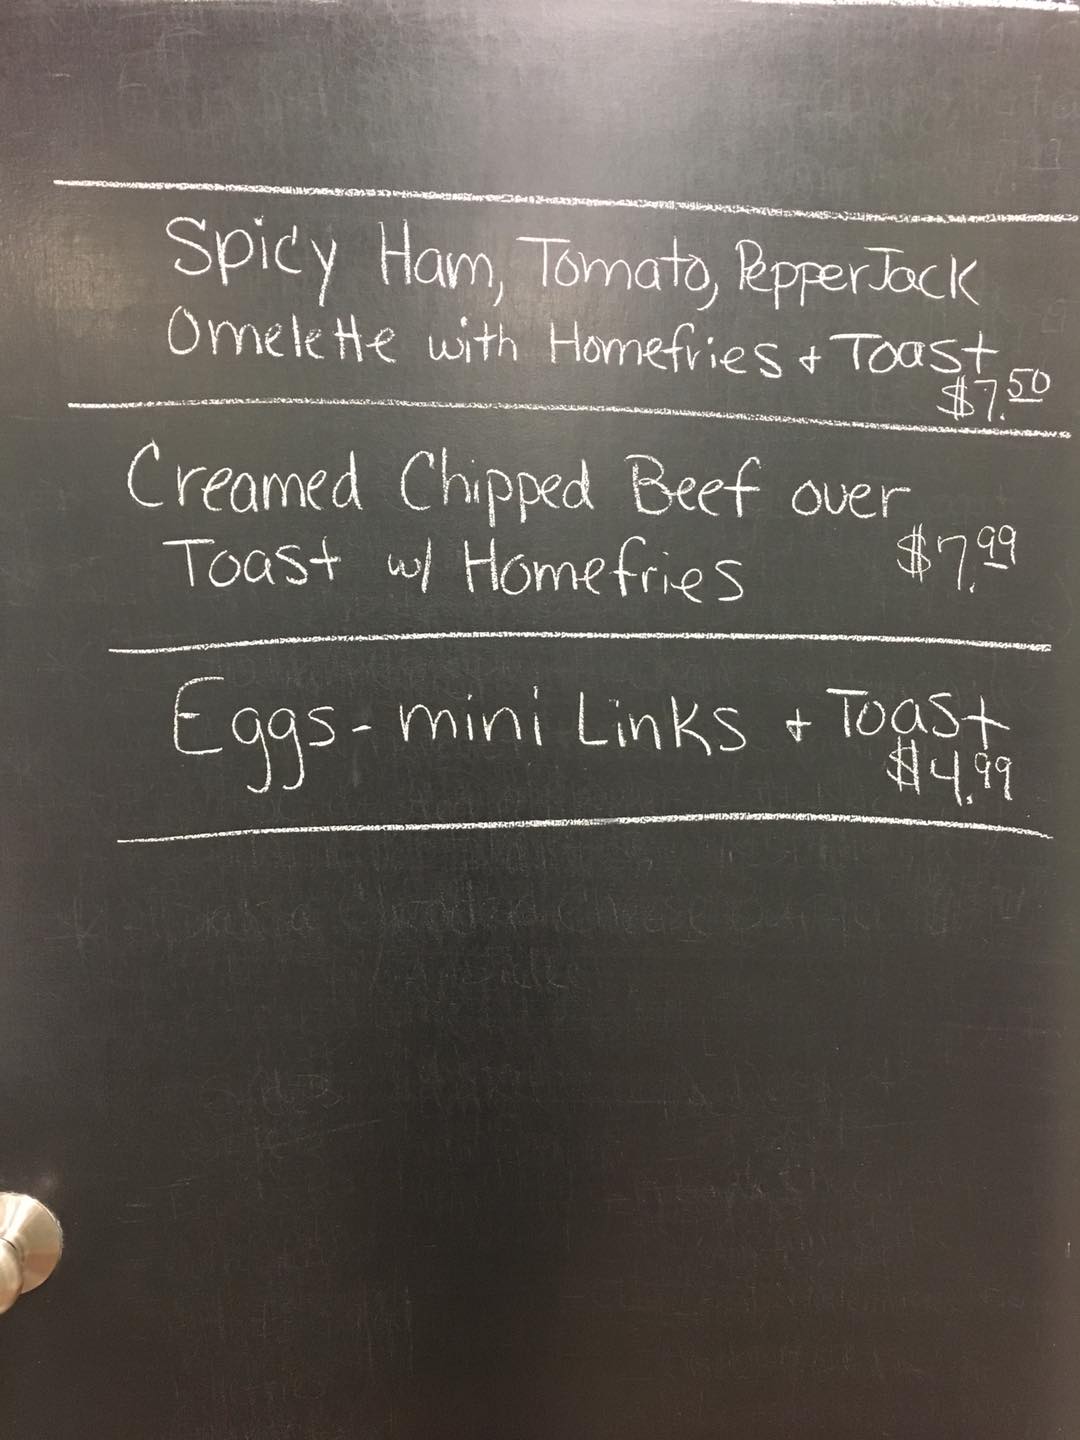 Spicy Ham, Tomato, PepperJack
Omelette with Homefries + Toast
$7.50
Creamed Chipped Beef over
Toast w/ Homefries $7.99
Eggs - mini Links + Toast
$4.99